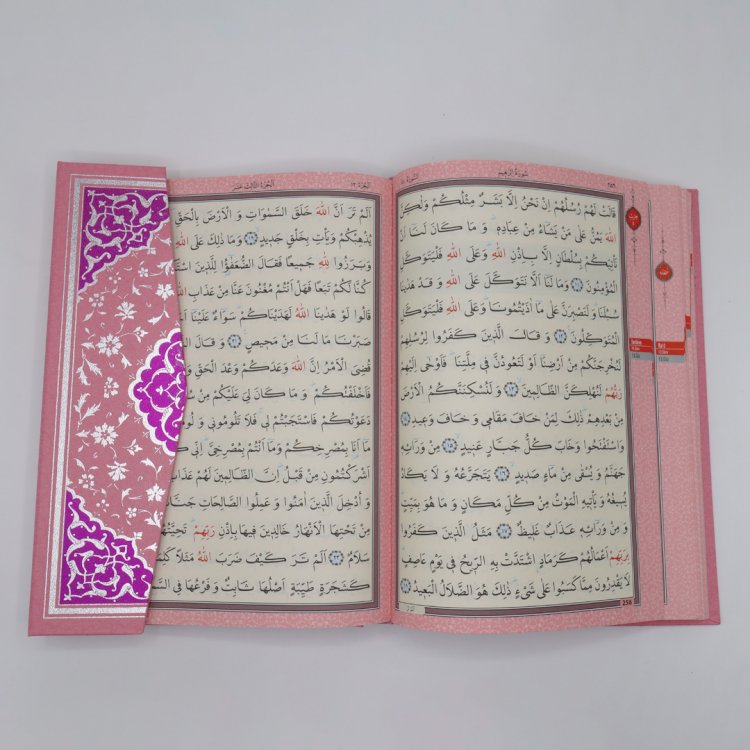 ٢٥٦
سُورَةُ اِبْرٰهِيمَ
قَالَتْ لَهُمْ رُسُلُهُمْ اِنْ نَحْنُ اِلَّا بَشَرٌ مِثْلُكُمْ وَلٰكِنَّ
اللّٰهَ يَمُنُّ عَلٰى مَنْ يَشَاءُ مِنْ عِبَادِهٖ وَمَا كَانَ لَنَا اَنْ
نَأْتِيَكُمْ بِسُلْطَانٍ اِلَّا بِاِذْنِ اللّٰهِ وَعَلَى اللّٰهِ فَلْيَتَوَكَّلِ
الْمُؤْمِنُونَ ﴿١١﴾ وَمَا لَنَا اَلَّا نَتَوَكَّلَ عَلَى اللّٰهِ وَقَدْ هَدٰينَا
سُبُلَنَا وَلَنَصْبِرَنَّ عَلٰى مَا اٰذَيْتُمُونَا وَعَلَى اللّٰهِ فَلْيَتَوَكَّلِ
الْمُتَوَكِّلُونَ ﴿١٢﴾ وَقَالَ الَّذِينَ كَفَرُوا لِرُسُلِهِمْ
لَنُخْرِجَنَّكُمْ مِنْ اَرْضِنَا اَوْ لَتَعُودُنَّ فِي مِلَّتِنَا فَاَوْحٰى اِلَيْهِمْ
رَبُّهُمْ لَنُهْلِكَنَّ الظَّالِمِينَ ﴿١٣﴾ وَلَنُسْكِنَنَّكُمُ الْاَرْضَ
مِنْ بَعْدِهِمْ ذٰلِكَ لِمَنْ خَافَ مَقَامِي وَخَافَ وَعِيدِ ﴿١٤﴾
وَاسْتَفْتَحُوا وَخَابَ كُلُّ جَبَّارٍ عَنِيدٍ ﴿١٥﴾ مِنْ وَرَائِهٖ
جَهَنَّمُ وَيُسْقٰى مِنْ مَاءٍ صَدِيدٍ ﴿١٦﴾ يَتَجَرَّعُهُ وَلَا يَكَادُ
يُسِيغُهُ وَيَأْتِيهِ الْمَوْتُ مِنْ كُلِّ مَكَانٍ وَمَا هُوَ بِمَيِّتٍ
وَمِنْ وَرَائِهٖ عَذَابٌ غَلِيظٌ ﴿١٧﴾ مَثَلُ الَّذِينَ كَفَرُوا
بِرَبِّهِمْ اَعْمَالُهُمْ كَرَمَادٍ اشْتَدَّتْ بِهِ الرِّيحُ فِي يَوْمٍ عَاصِفٍ
لَا يَقْدِرُونَ مِمَّا كَسَبُوا عَلٰى شَيْءٍ ذٰلِكَ هُوَ الضَّلَالُ الْبَعِيدُ ﴿١٨﴾
256
اَلْجُزْءُ ١٣
اَلْجُزْءُ الثَّالِثَ عَشَرَ
اَلَمْ تَرَ اَنَّ اللّٰهَ خَلَقَ السَّمٰوَاتِ وَالْاَرْضَ بِالْحَقِّ
يُذْهِبْكُمْ وَيَأْتِ بِخَلْقٍ جَدِيدٍ ﴿١٩﴾ وَمَا ذٰلِكَ عَلَى اللّٰهِ
وَبَرَزُوا لِلّٰهِ جَمِيعًا فَقَالَ الضُّعَفٰؤُا لِلَّذِينَ
كُنَّا لَكُمْ تَبَعًا فَهَلْ اَنْتُمْ مُغْنُونَ عَنَّا مِنْ عَذَابِ
قَالُوا لَوْ هَدٰينَا اللّٰهُ لَهَدَيْنَاكُمْ سَوَاءٌ عَلَيْنَا
صَبَرْنَا مَا لَنَا مِنْ مَحِيصٍ ﴿٢١﴾ وَقَالَ
قُضِيَ الْاَمْرُ اِنَّ اللّٰهَ وَعَدَكُمْ وَعْدَ الْحَقِّ
فَاَخْلَفْتُكُمْ وَمَا كَانَ لِيَ عَلَيْكُمْ مِنْ
دَعَوْتُكُمْ فَاسْتَجَبْتُمْ لِي فَلَا تَلُومُونِي
مَا اَنَا بِمُصْرِخِكُمْ وَمَا اَنْتُمْ بِمُصْرِخِيَّ اِنِّي
اَشْرَكْتُمُونِ مِنْ قَبْلُ اِنَّ الظَّالِمِينَ لَهُمْ عَذَابٌ
وَاُدْخِلَ الَّذِينَ اٰمَنُوا وَعَمِلُوا الصَّالِحَاتِ
مِنْ تَحْتِهَا الْاَنْهَارُ خَالِدِينَ فِيهَا بِاِذْنِ رَبِّهِمْ تَحِيَّتُهُمْ
سَلَامٌ ﴿٢٣﴾ اَلَمْ تَرَ كَيْفَ ضَرَبَ اللّٰهُ مَثَلًا
كَشَجَرَةٍ طَيِّبَةٍ اَصْلُهَا ثَابِتٌ وَفَرْعُهَا فِي